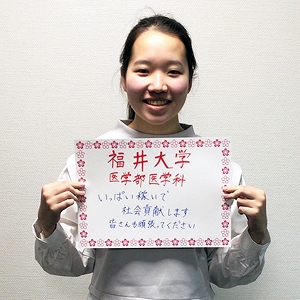 福井大学
医学部医学科
いっぱい稼いで
社会貢献します
皆さんも頑張ってください